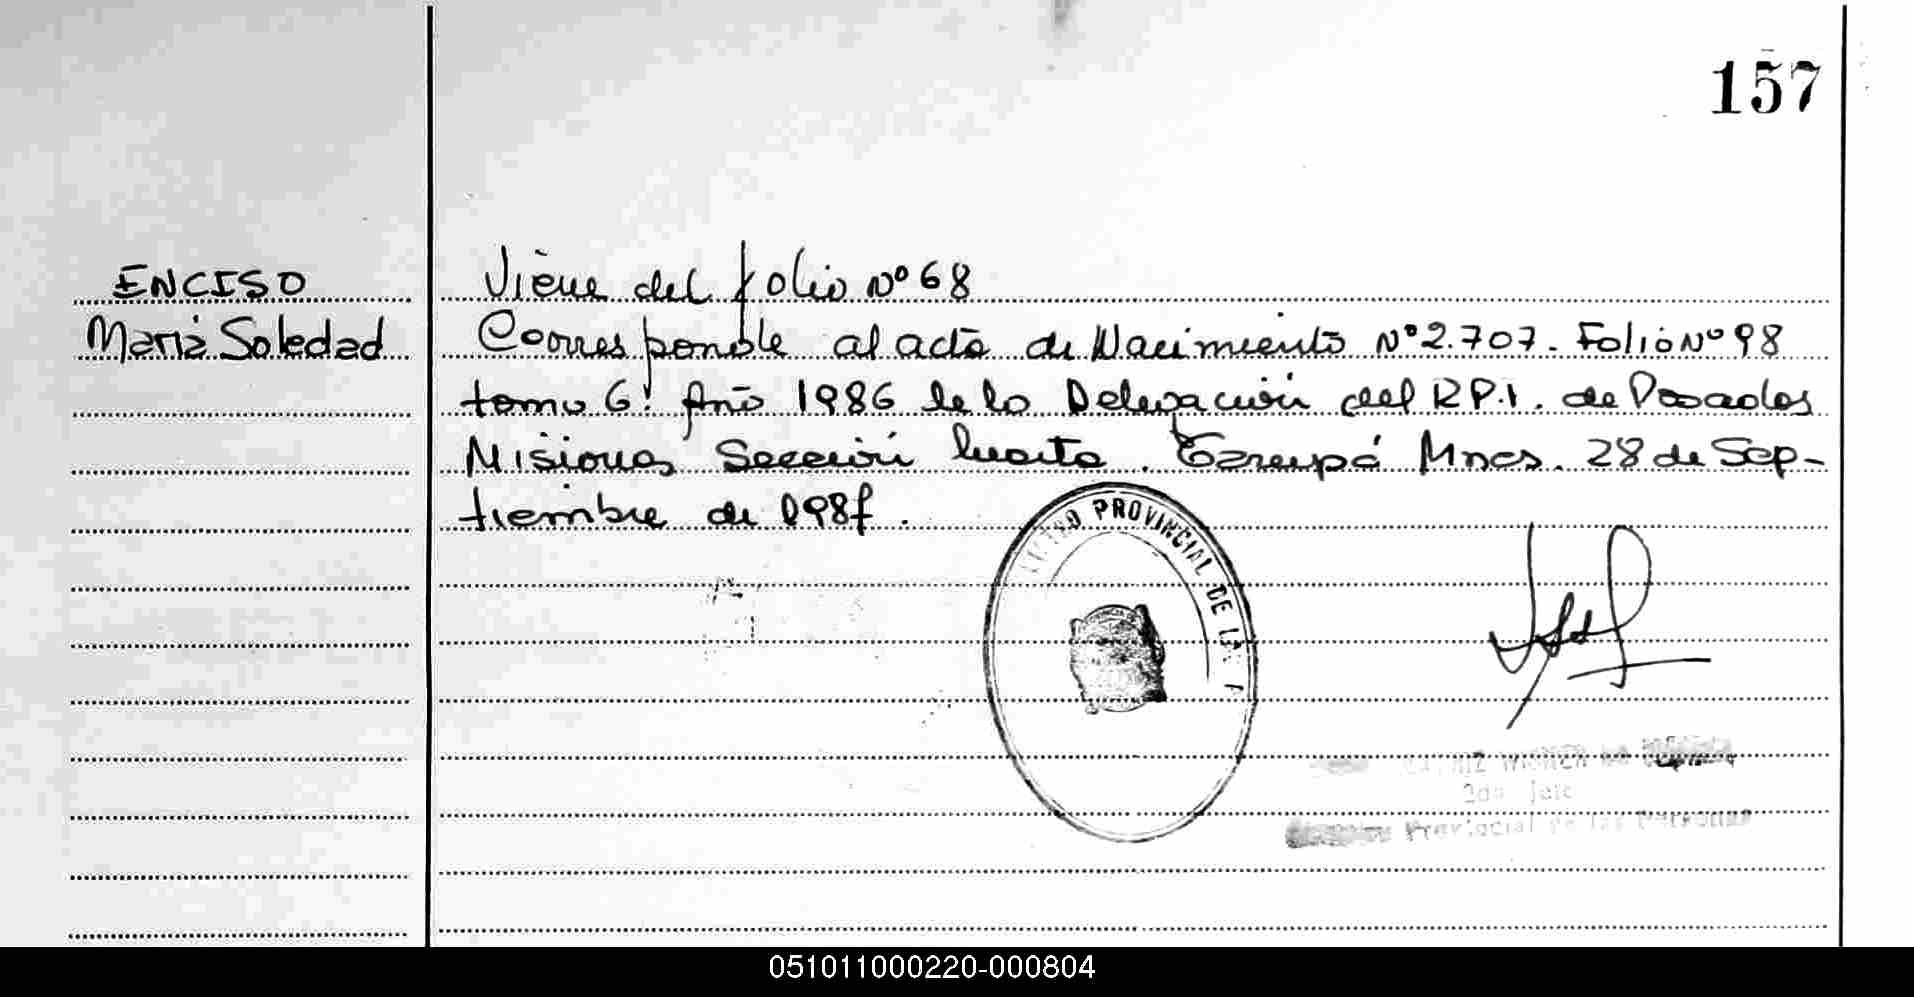 157
ENCISO
María Soledad
Viene del folio Nº 68
Corresponde al acta de Nacimiento Nº 2.707. Folio Nº 98
tomo 6! Año 1986 de la Delegación del R.P.I. de Posadas
Misiones Sección Cuarta. Garupá Mnes. 28 de Sep-
tiembre de 198
PROVINCIAL DE
WISNER DE
2da Jefe
Provincial de las Personas
051011000220-000804